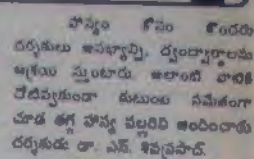 హాస్యం కోసం కొందరు
దర్శకులు అసభ్యాన్ని, ద్వంద్వార్థాలను
ఆశ్రయి స్తుంటారు అలాంటి వాటికి
చోటివ్వకుండా కుటుంబ సమేతంగా
చూడ తగ్గ హాస్య పల్లరిని అందించాడు
దర్శకుడు డా. ఎన్. శివప్రసాద్.